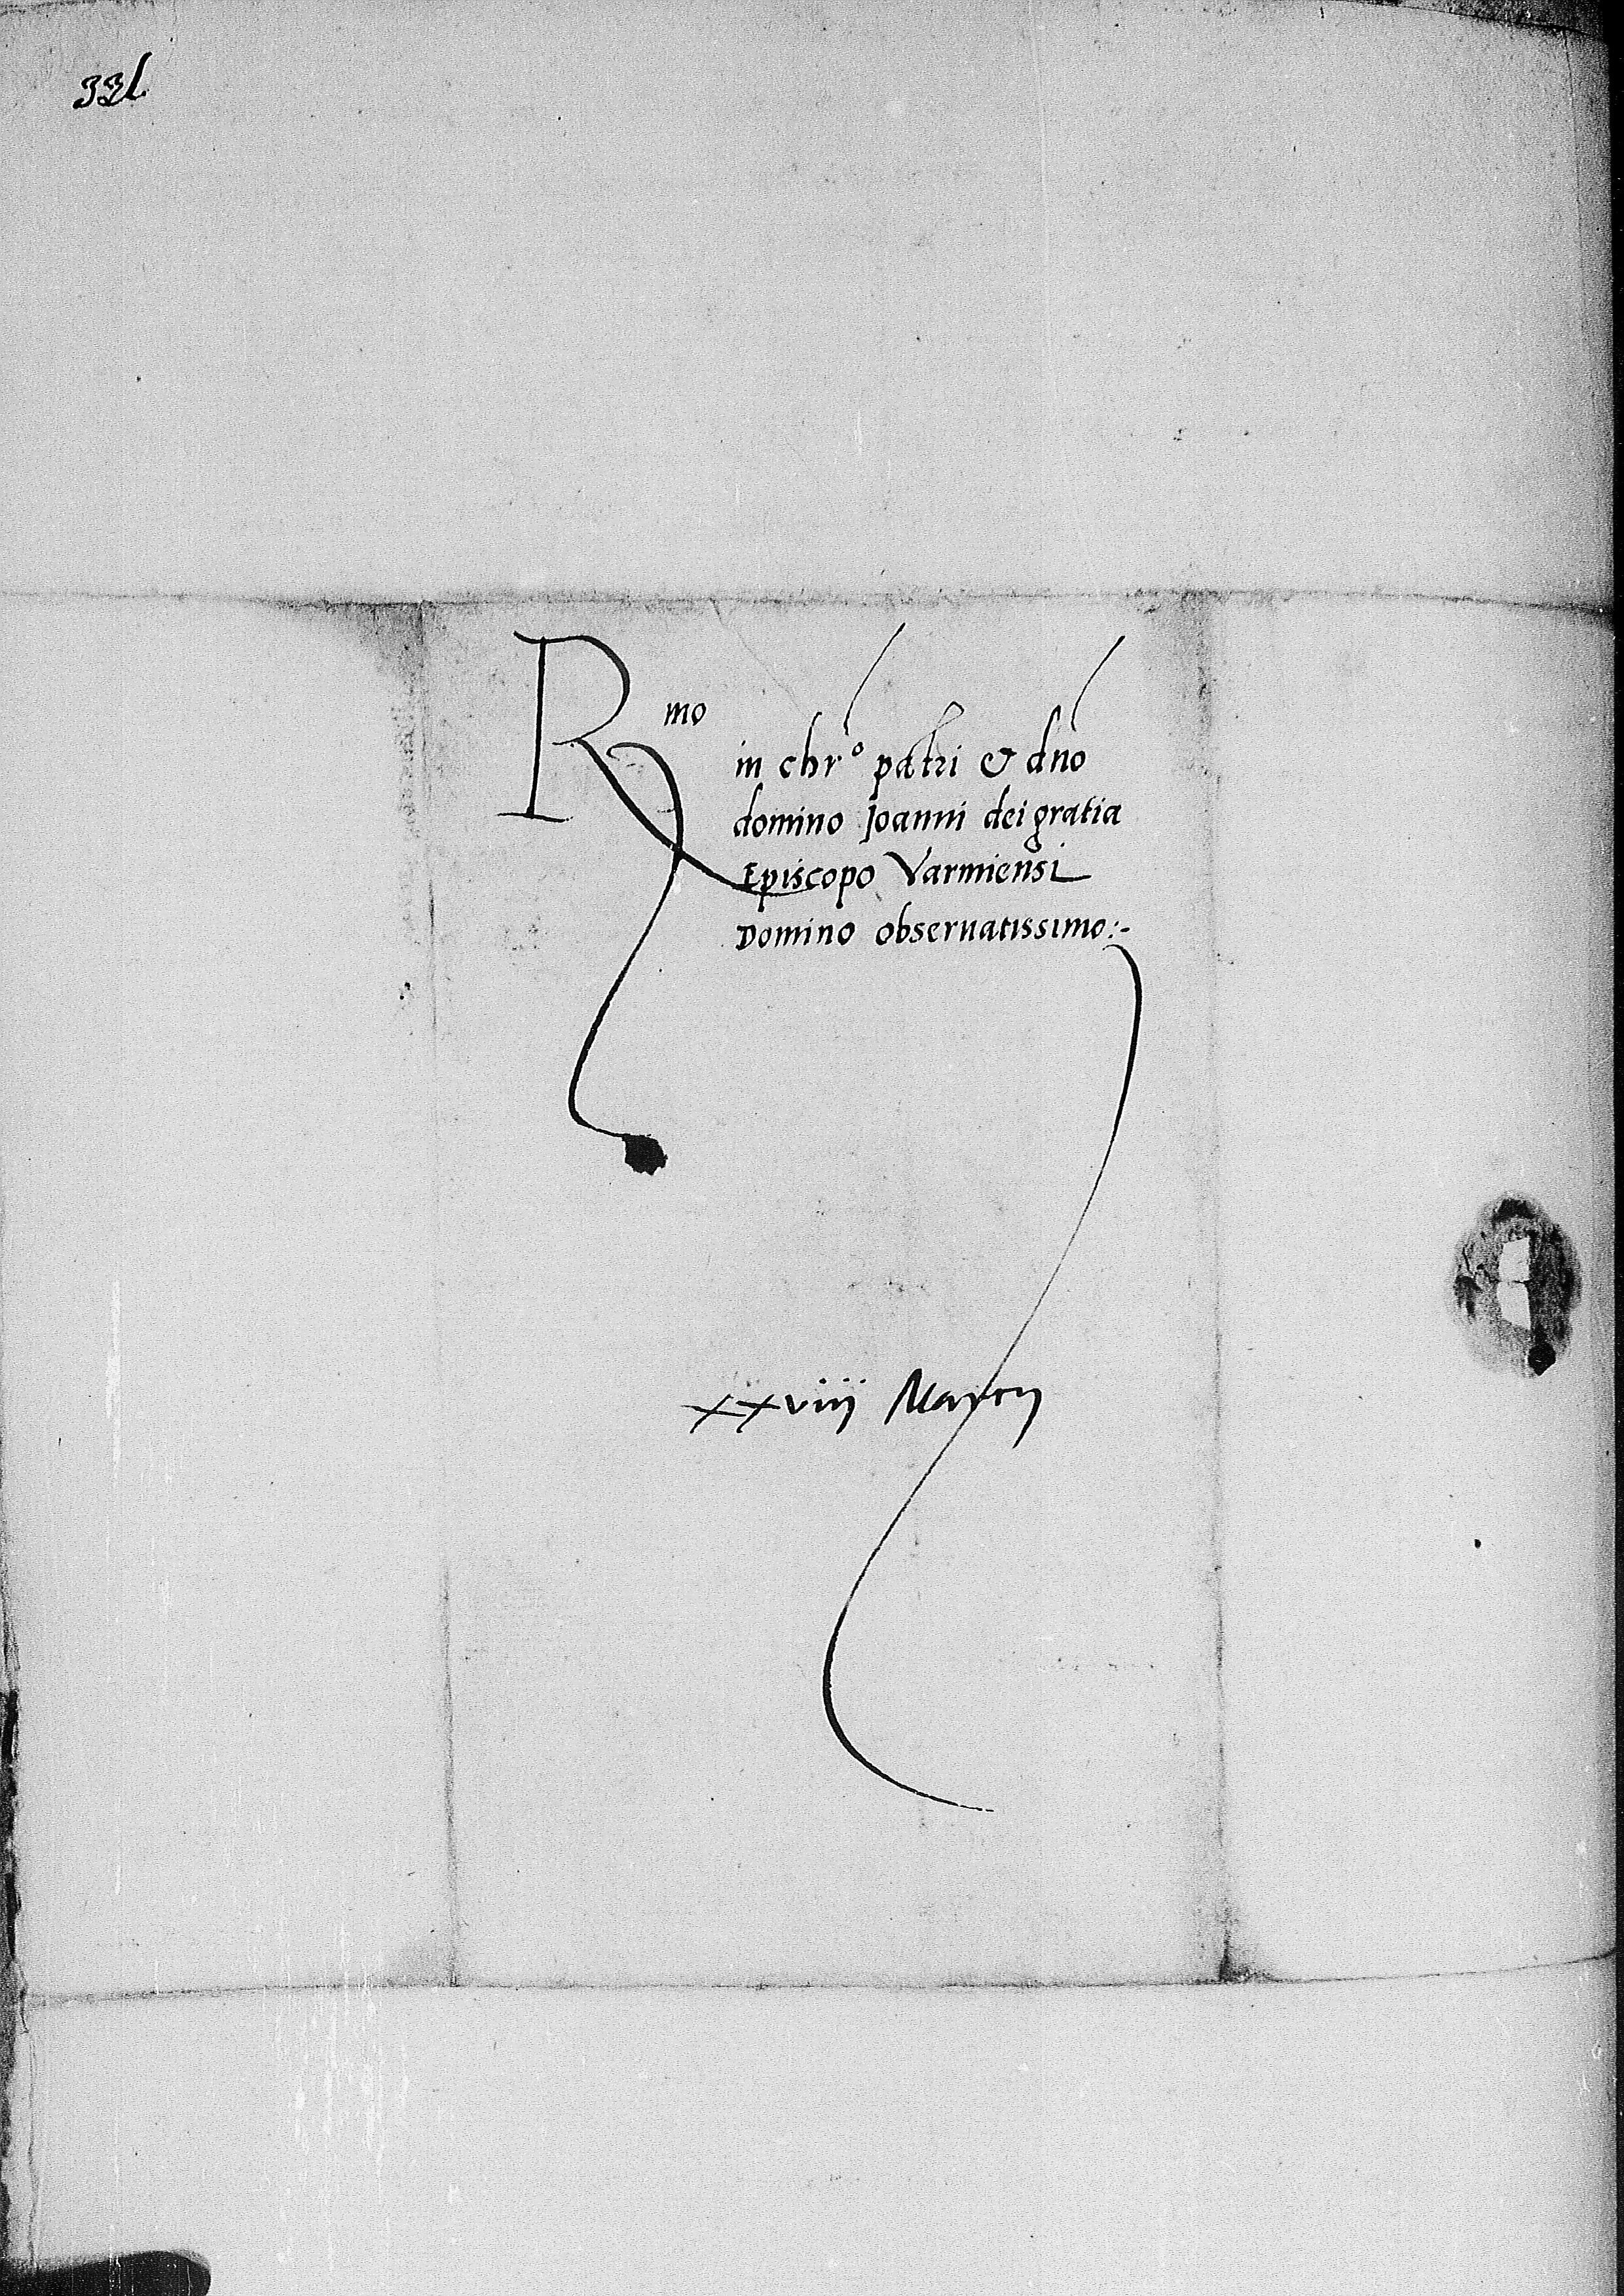 331
Rmo
in chro patri & dno
domino Joanni dei gratia
Episcopo Varmiensi
Domino obseruatissimo:-
xxviij Martij